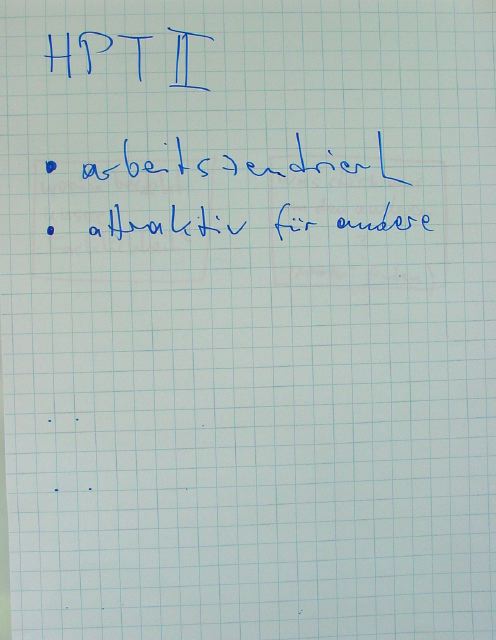 HPT II
• arbeitszendriert
• attraktiv für andere